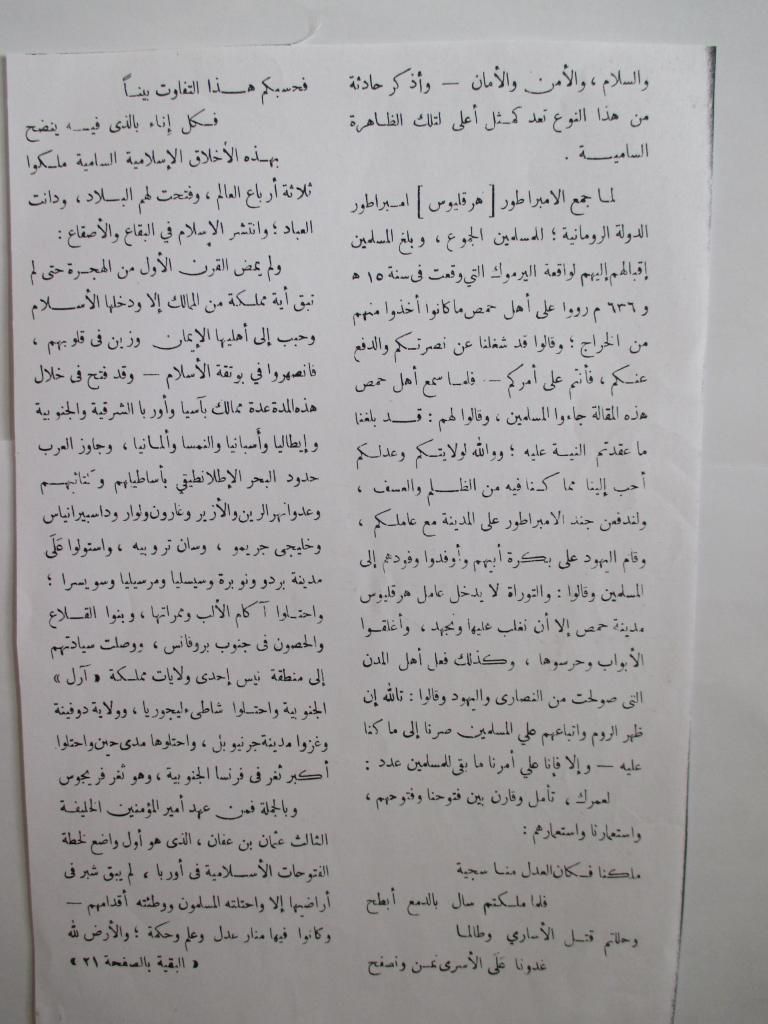 والسلام ، والأمن والأمان — وأذكر حادثة
من هذا النوع تعد كمثل أعلى لتلك الظاهرة
الساميـــة .
لما جمع الامبراطور [ هرقليوس ] امبراطور
الدولة الرومانية ؛ للمسلمين الجموع ، وبلغ المسلمين
إقبالهم إليهم لواقعة اليرموك التي وقعت فى سنة ١٥ ه
و ٦٣٦ م رووا على أهل حمص ما كانوا أخذوا منهم
من الخراج ؛ وقالوا قد شغلنا عن نصرتكم والدفع
عنكم ، فأنتم على أمركم — فلما سمع أهل حمص
هذه المقالة جاءوا المسلمين ، وقالوا لهم : قد بلغنا
ما عقدتم النية عليه ؛ ووالله لولايتكم وعدلكم
أحب إلينا مما كنا فيه من الظلم والعسف ،
ولندفعن جند الامبراطور على المدينة مع عاملكم ،
وقام اليهود على بكرة أبيهم وأوفدوا وفودهم إلى
المسلمين وقالوا : والتوراة لا يدخل عامل هرقليوس
مدينة حمص إلا أن نغلب عليها ونجهد ، وأغلقوا
الأبواب وحرسوها ، وكذلك فعل أهل المدن
التى صولحت من النصارى واليهود وقالوا : تالله إن
ظهر الروم واتباعهم علي المسلمين صرنا إلى ما كنا
عليه — وإلا فإنا علي أمرنا ما بقى للمسلمين عدد :
لعمرك ، تأمل وقارن بين فتوحنا وفتوحهم ،
واستعمارنا واستعمارهم :
ملكنا فكان العدل منا سجية
فلما ملكتم سال بالدمع أبطح
وحللتم قتل الأساري وطالما
غدونا على الأسرى نمن ونصفح
فحسبكم هذا التفاوت بيننـاً
فكل إناء بالذى فيه ينضح
بهذه الأخلاق الإسلامية السامية ملكوا
ثلاثة أرباع العالم ، وفتحت لهم البلاد ، ودانت
العباد ؛ وانتشر الإسلام في البقاع والأصقاع :
ولم يمض القرن الأول من الهجرة حتى لم
تبق أية مملكة من الممالك إلا ودخلها الأسلام
وحبب إلى أهليها الإيمان وزين فى قلوبهم ،
فانصهروا في بوتقة الأسلام — وقد فتح فى خلال
هذه المدة عدة ممالك بآسيا وأوربا الشرقية والجنوبية
وإيطاليا وأسبانيا والنمسا وألمانيا ، وجاوز العرب
حدود البحر الإطلانطيقي بأساطيلهم وكتائبهم
وعدوا نهر الرين والأزير وغارون ولوار وداسبيرانياس
وخليجى جريمو ، وسان تروبيه ، واستولوا عَلَى
مدينة بردو ونوبرة وسيسليا ومرسيليا وسويسرا ؛
واحتلوا آكام الألب وممراتها ، وبنوا القلاع
والحصون فى جنوب بروفانس ، ووصلت سيادتهم
إلى منطقة نيس إحدى ولايات مملكة « آرل »
الجنوبية واحتلوا شاطىء ليجوريا ، وولاية دوفينة
وغزوا مدينة جرنيوبل ، واحتلوها مدى حين واحتلوا
أكبر ثغر فى فرنسا الجنوبية ، وهو ثغر فريجوس
وبالجملة فمن عهد أمير المؤمنين الخليفة
الثالث عثمان بن عفان ، الذى هو أول واضع لخطة
الفتوحات الأسلامية فى أوربا ، لم يبق شبر فى
أراضيها إلا واحتلته المسلمون ووطئته أقدامهم —
وكانوا فيها منار عدل وعلم وحكمة ؛ والأرض لله
« البقية بالصفحة ٢١ »